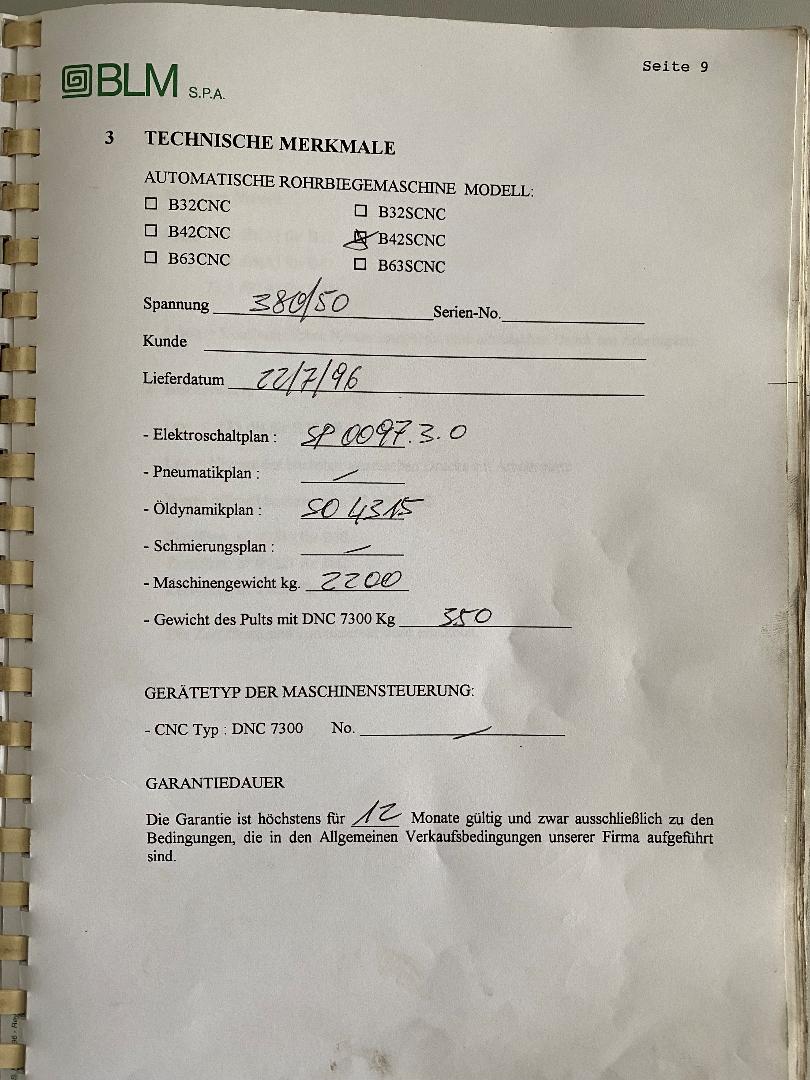 Seite 9
BLM S.P.A.
3 TECHNISCHE MERKMALE
AUTOMATISCHE ROHRBIEGEMASCHINE MODELL:
☐ B32CNC ☐ B32SCNC
☐ B42CNC ☒ B42SCNC
☐ B63CNC ☐ B63SCNC
Spannung 380/50 Serien-No.
Kunde
Lieferdatum 22/7/96
- Elektroschaltplan : SP 0097.3.0
- Pneumatikplan : /
- Öldynamikplan : SO 4315
- Schmierungsplan : /
- Maschinengewicht kg. 2200
- Gewicht des Pults mit DNC 7300 Kg 350
GERÄTETYP DER MASCHINENSTEUERUNG:
- CNC Typ : DNC 7300 No. /
GARANTIEDAUER
Die Garantie ist höchstens für 12 Monate gültig und zwar ausschließlich zu den
Bedingungen, die in den Allgemeinen Verkaufsbedingungen unserer Firma aufgeführt
sind.